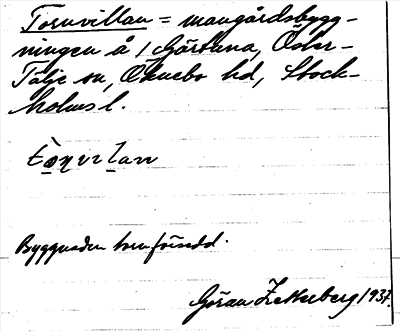 Tornvillan = mangårdsbygg-
ningen å 1 Gärtuna, Öster-
Tälje sn, Öknebo hd, Stock-
holms l.
tò̱ṉvilan
Byggnaden tornförsedd.
Göran Zetterberg 1937.